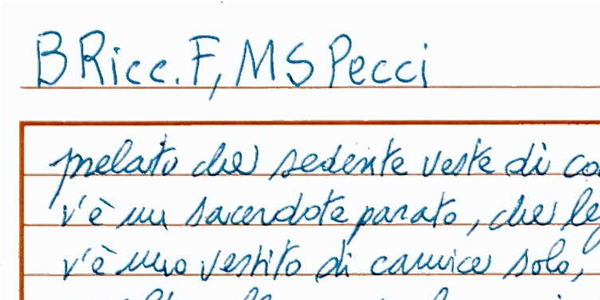 B Ricc. F, MS Pecci
prelato che sedente veste di
v'è un sacerdote parato, che
v'è uno vestito di camice solo,